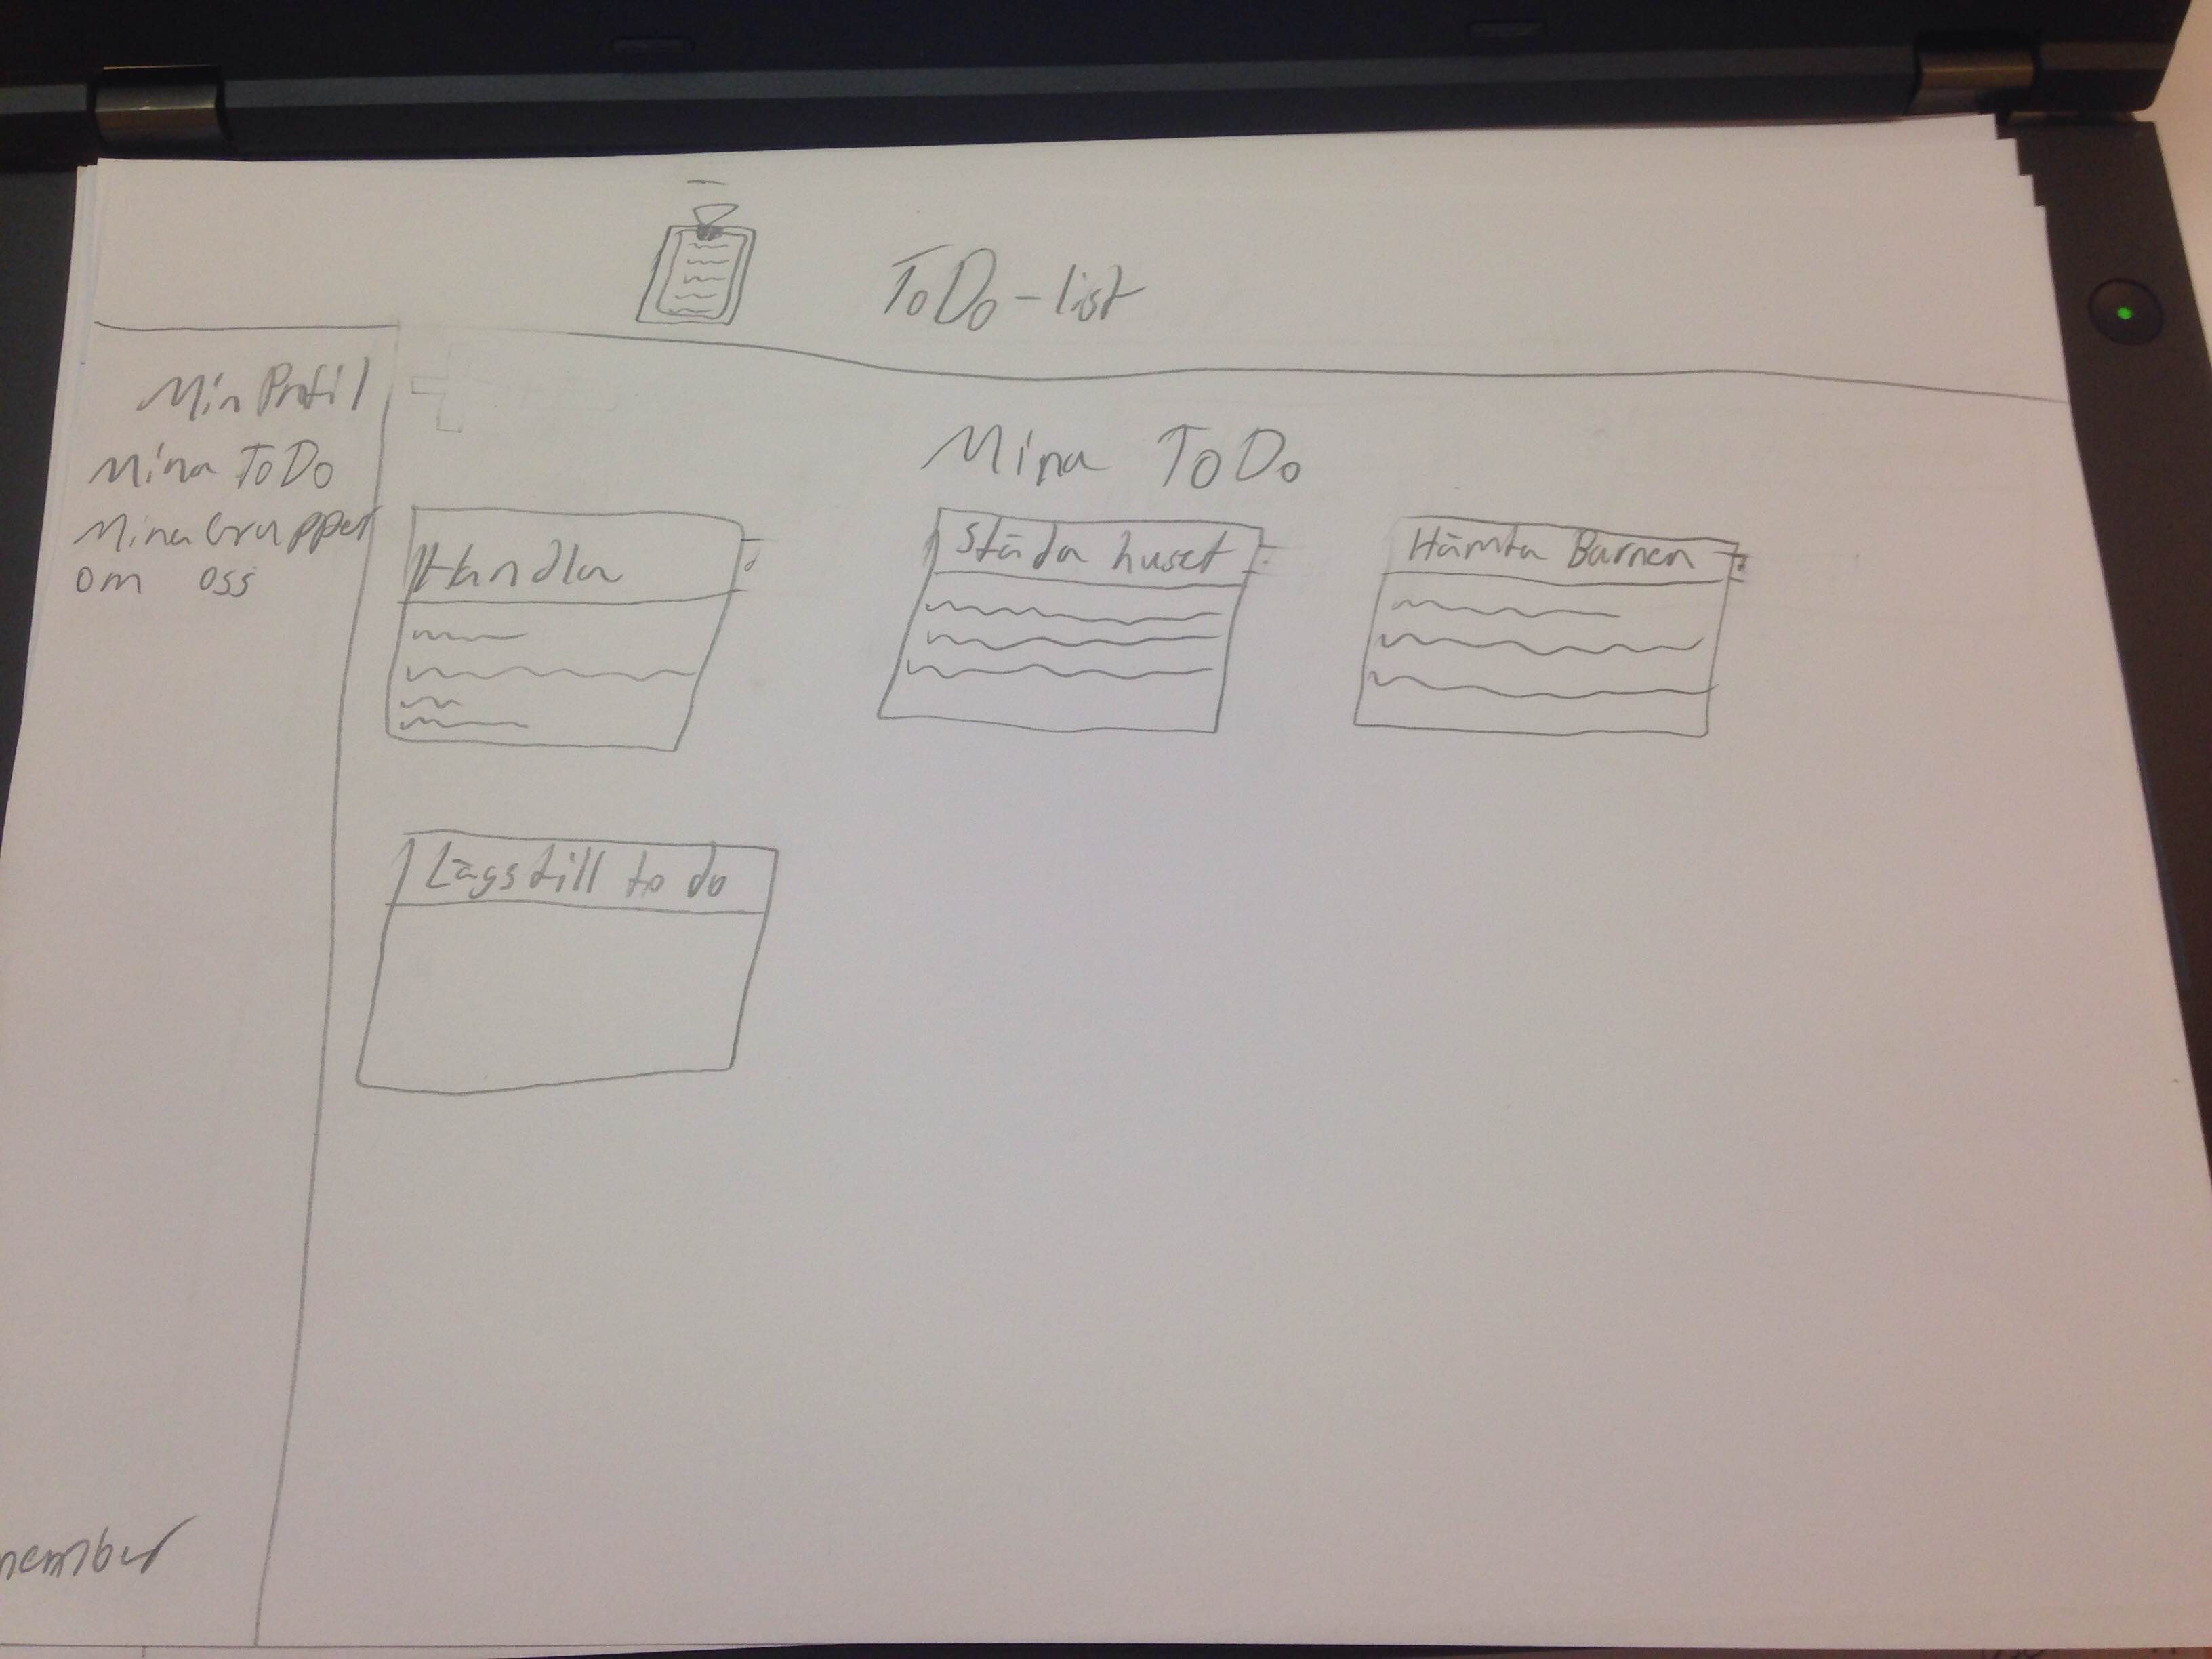 ToDo-list
Min Profil
Mina ToDo
Mina Grupper
om oss
Mina ToDo
Handla
Städa huset
Hämta Barnen
Lägs till to do
member